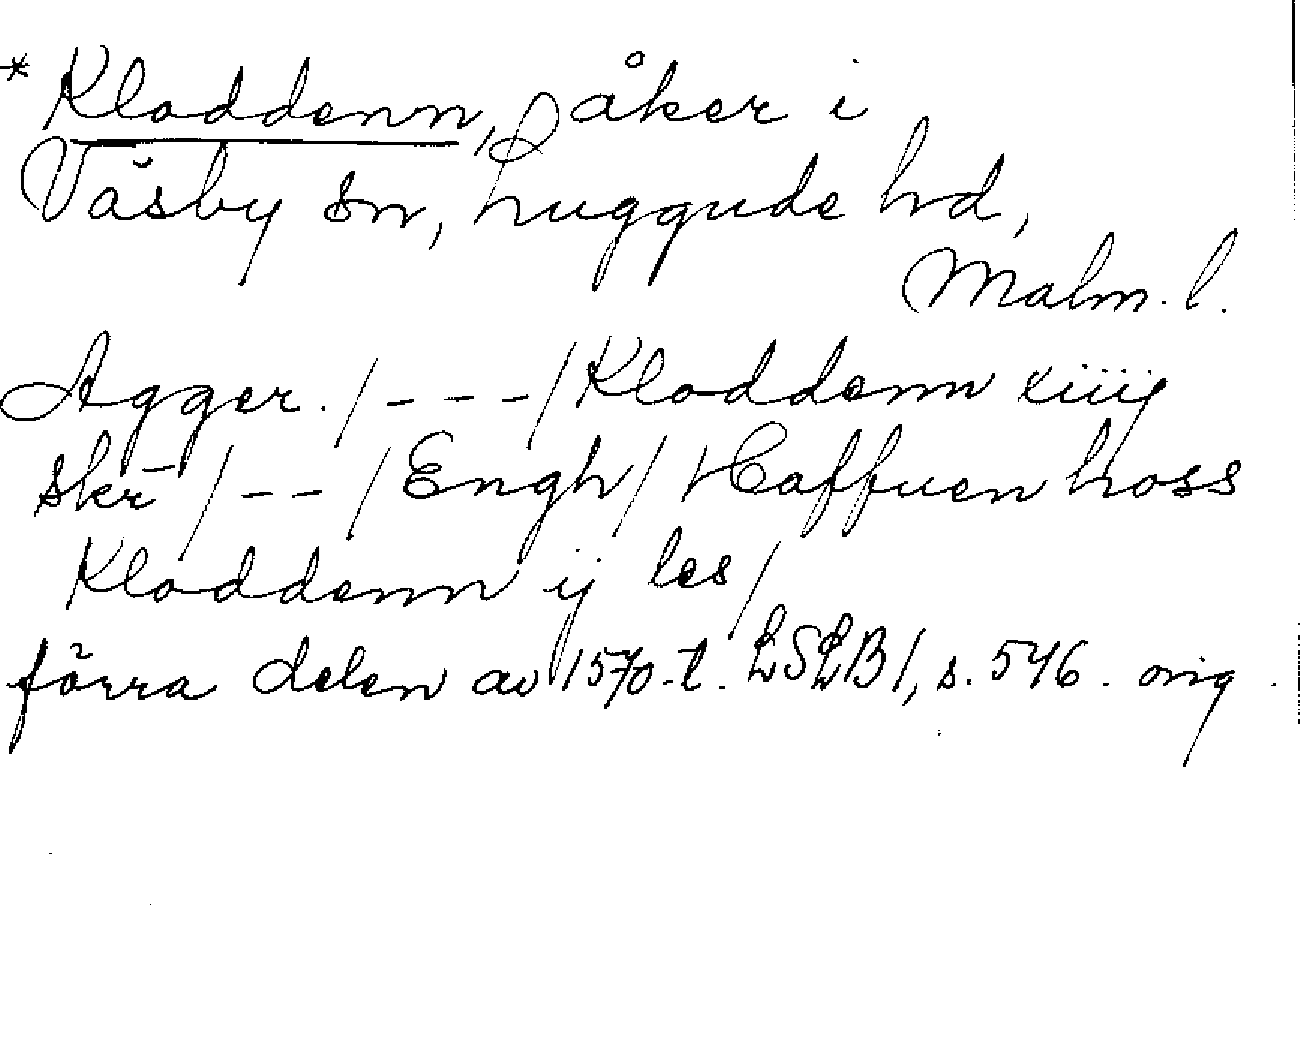 * Kloddenn, åker i
Väsby sn, Luggude hd,
Malm. l.
Agger. /---/ Kloddenn xiiij
skr̄ /--/ Engh / Haffuen hoss
Kloddenn ij les /
förra delen av 1570-t. LSLB 1, s. 546. orig.